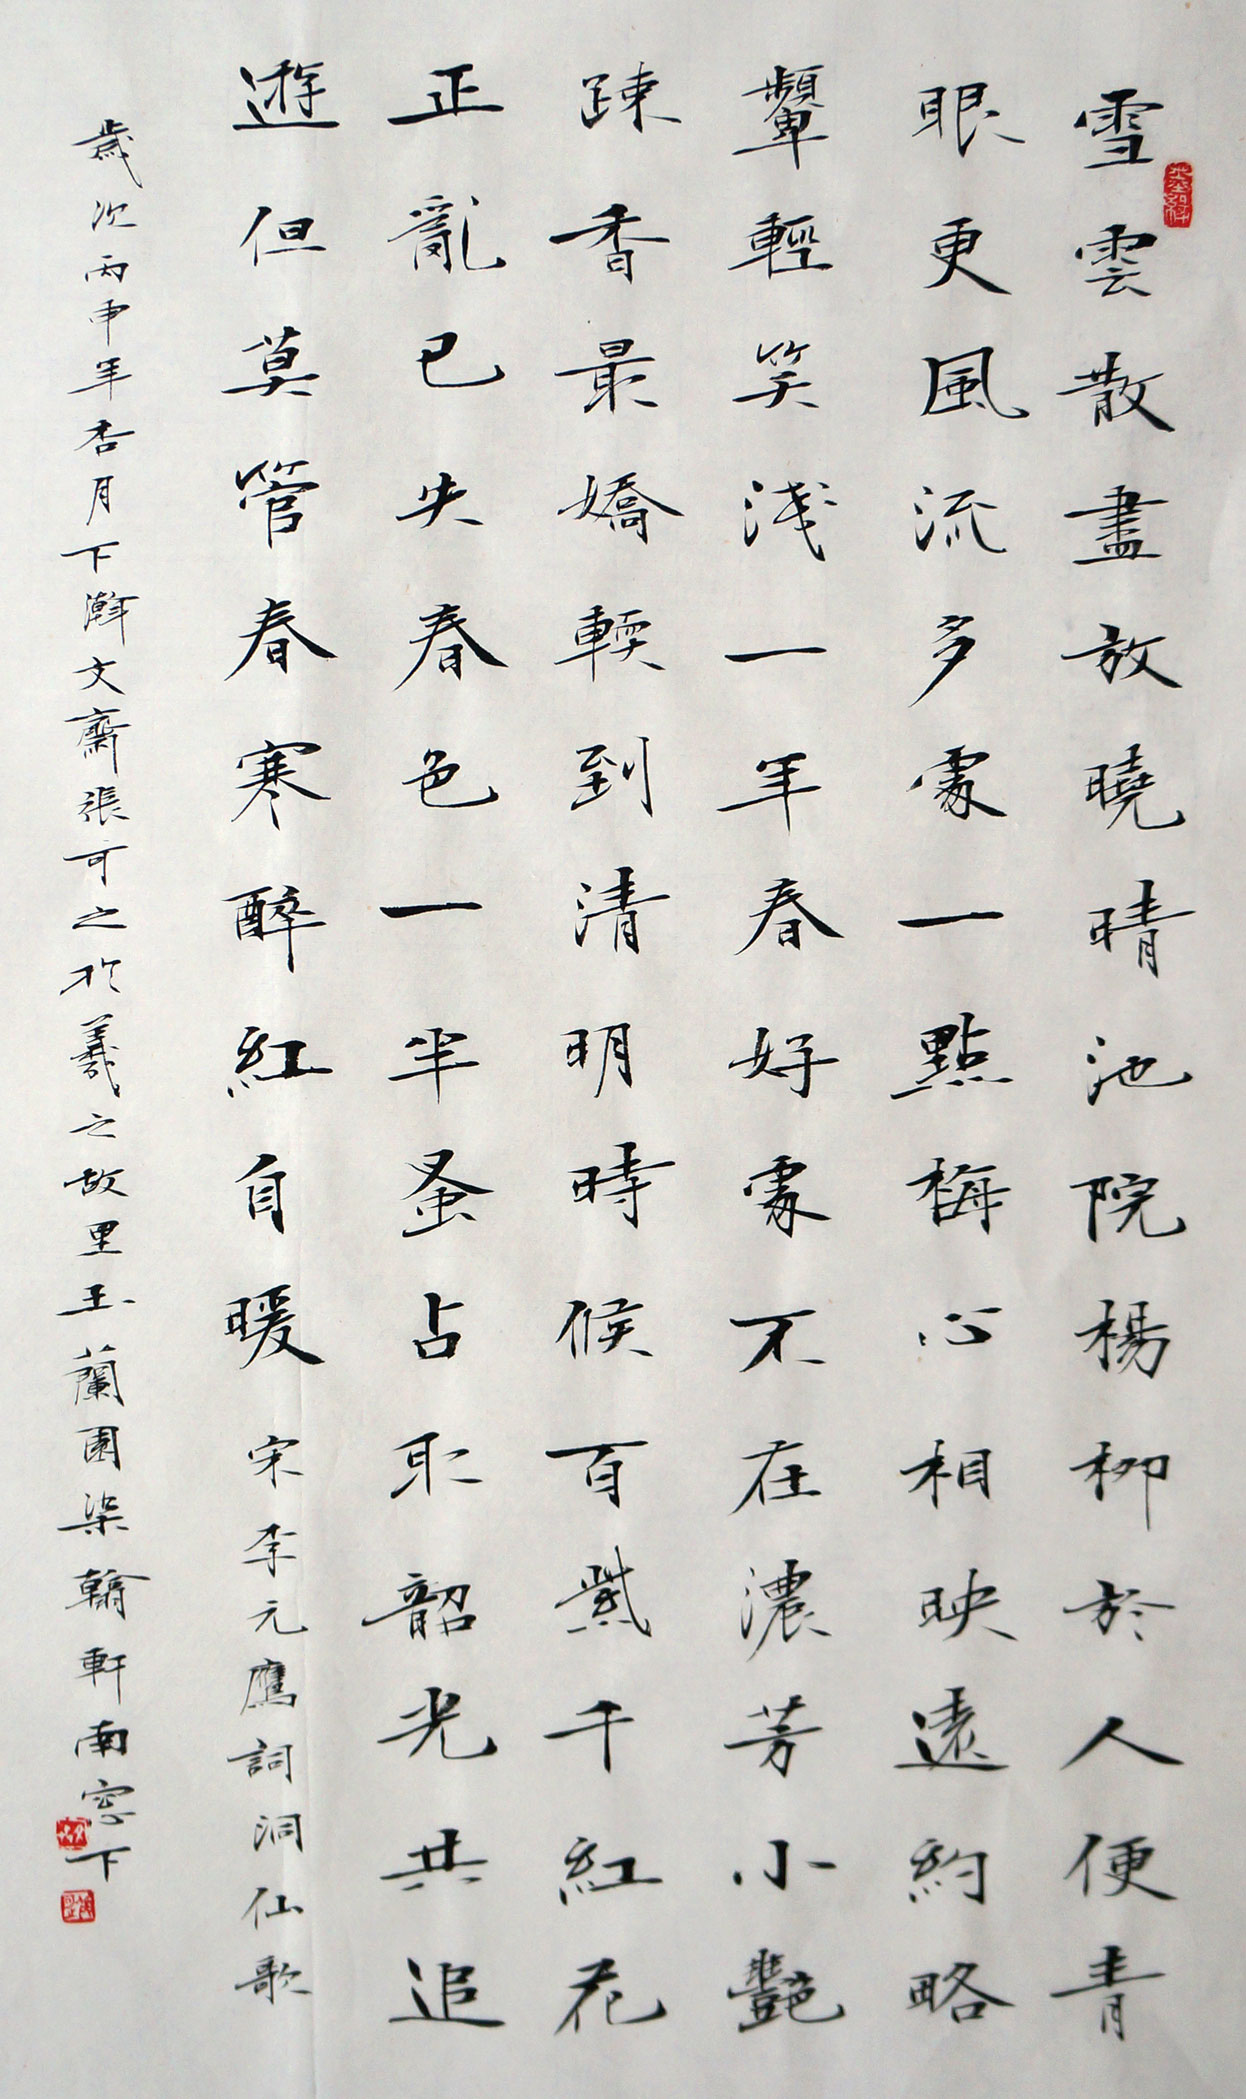 雪雲散盡放曉晴池院楊柳於人便青
眼更風流多處一點梅心相映遠約略
顰輕笑淺一年春好處不在濃芳小艷
踈香最嬌輭到清明時候百紫千紅花
正亂已失春色一半蚤占取韶光共追
遊但莫管春寒醉紅自暖宋李元膺詞洞仙歌
歲次丙申年杏月下瀚文齋張可之於羲之故里玉蘭園柒翰軒南窓下